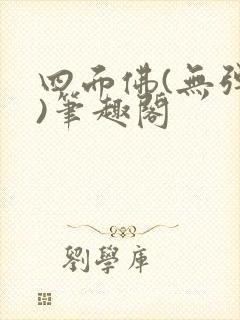 四面佛(無彈
)筆趣閣
劉學庫